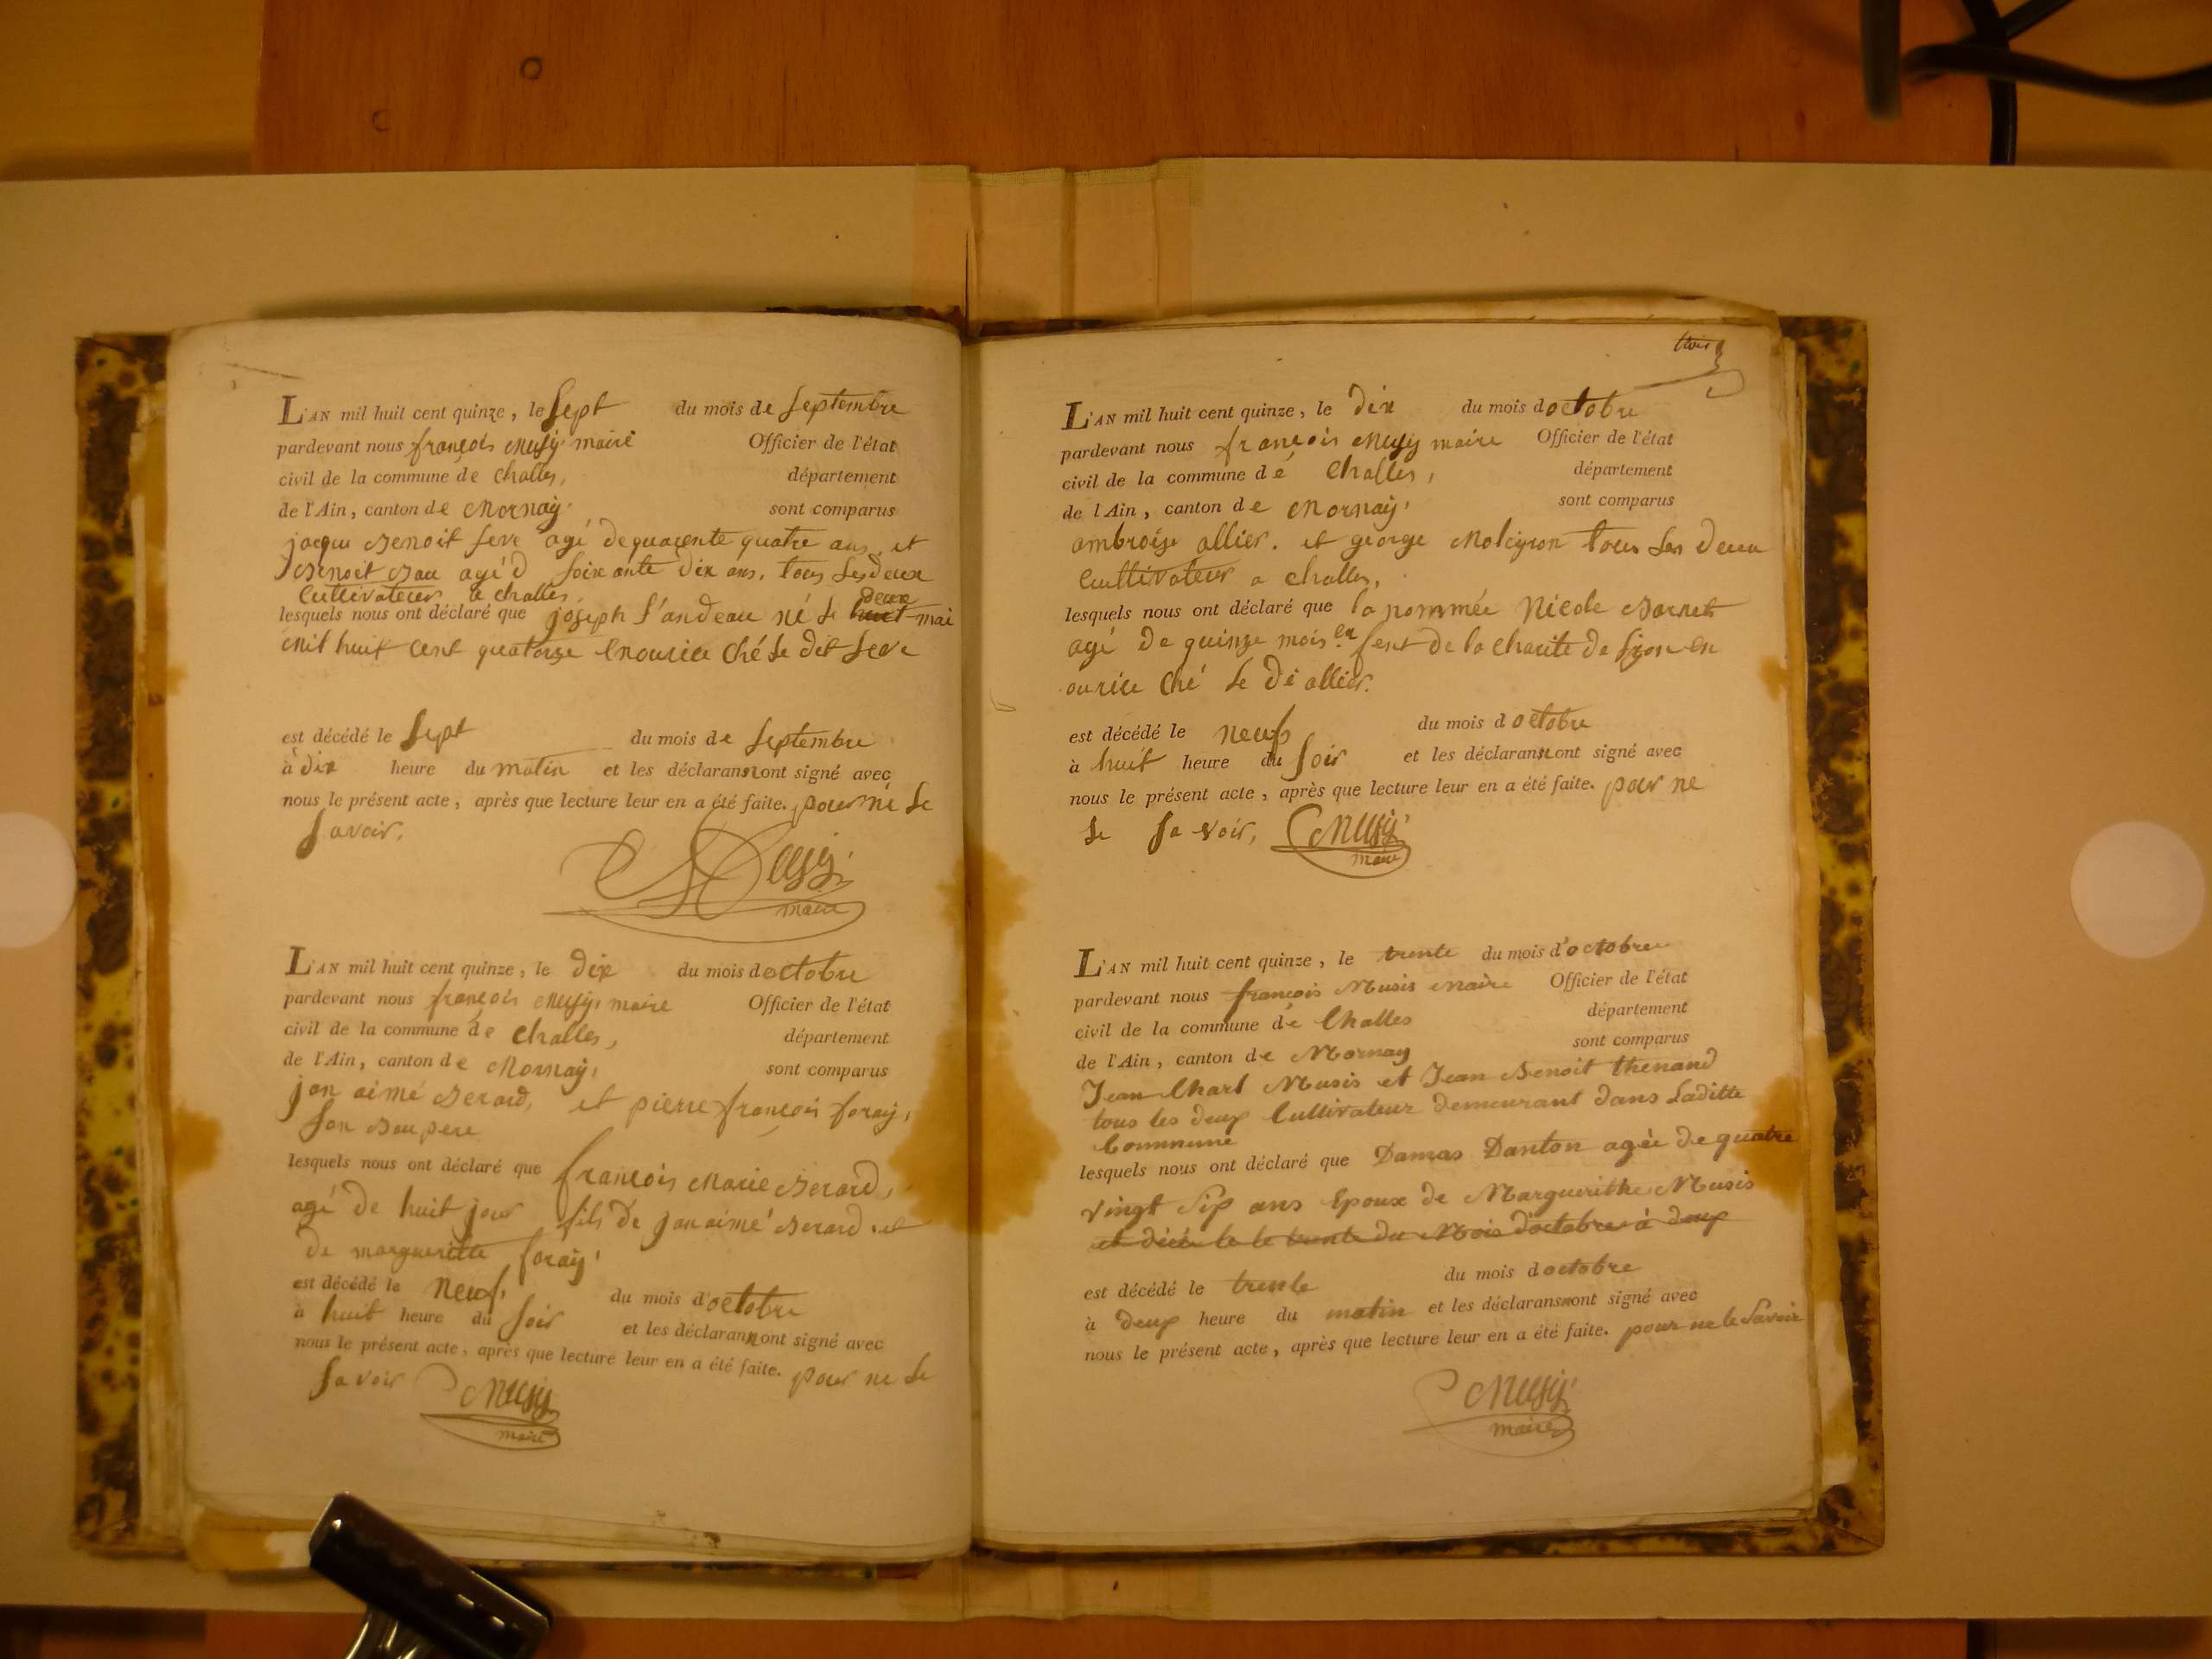 L'AN mil huit cent quinze, le sept du mois de septembre
pardevant nous françois Musy maire Officier de l'état
civil de la commune de challes, département
de l'Ain, canton de Mornay sont comparus
jacque Benoit seve agé de quarente quatre ans, et
Benoit Bau agé d soixante dix ans, tous les deux
cultivateur a challes
lesquels nous ont déclaré que joseph l'andeau né le huit deux mai
mil huit cent quatorze enourice ché le dit seve
est décédé le sept du mois de septembre
à dix heure du matin et les déclarans n'ont signé avec
nous le présent acte, après que lecture leur en a été faite. pour ne le
savoir.
Musy
maire
L'AN mil huit cent quinze, le dix du mois d octobre
pardevant nous françois Musy, maire Officier de l'état
civil de la commune de challes, département
de l'Ain, canton de Mornay, sont comparus
jan aimé Berard, et pierre françois foray,
son Bau pere
lesquels nous ont déclaré que françois Marie Berard,
agé de huit jour fils de jan aimé Berard et
de margueritte foray
est décédé le neuf, du mois d'octobre
à huit heure du soir et les déclarans n'ont signé avec
nous le présent acte, après que lecture leur en a été faite. pour ne le
savoir Musy
maire
trois
L'AN mil huit cent quinze, le dix du mois d octobre
pardevant nous françois Musy maire Officier de l'état
civil de la commune de challes, département
de l'Ain, canton de Mornay, sont comparus
ambroise allier. et george Molcyron tous les deux
cultivateur a challes,
lesquels nous ont déclaré que la nommée Nicole Barnet
agé de quinze mois en fent de la charite de lyon en
ourice ché le di allier.
est décédé le neuf du mois d octobre
à huit heure du soir et les déclarans n'ont signé avec
nous le présent acte, après que lecture leur en a été faite. pour ne
le savoir, Musy
maire
L'AN mil huit cent quinze, le trente du mois d'octobre
pardevant nous françois Musis maire Officier de l'état
civil de la commune de Challes département
de l'Ain, canton de Mornay sont comparus
Jean Charl Musis et Jean Benoit thenand
tous les deux Cultivateur demeurant dans Laditte
Commune
lesquels nous ont déclaré que Damas Danton agée de quatre
vingt six ans Epoux de Marguerithe Musis
et décéé le le trente du Mois doctobre à deux
est décédé le trente du mois d octobre
à deux heure du matin et les déclarans n'ont signé avec
nous le présent acte, après que lecture leur en a été faite. pour ne le Savoir
Musy
maire